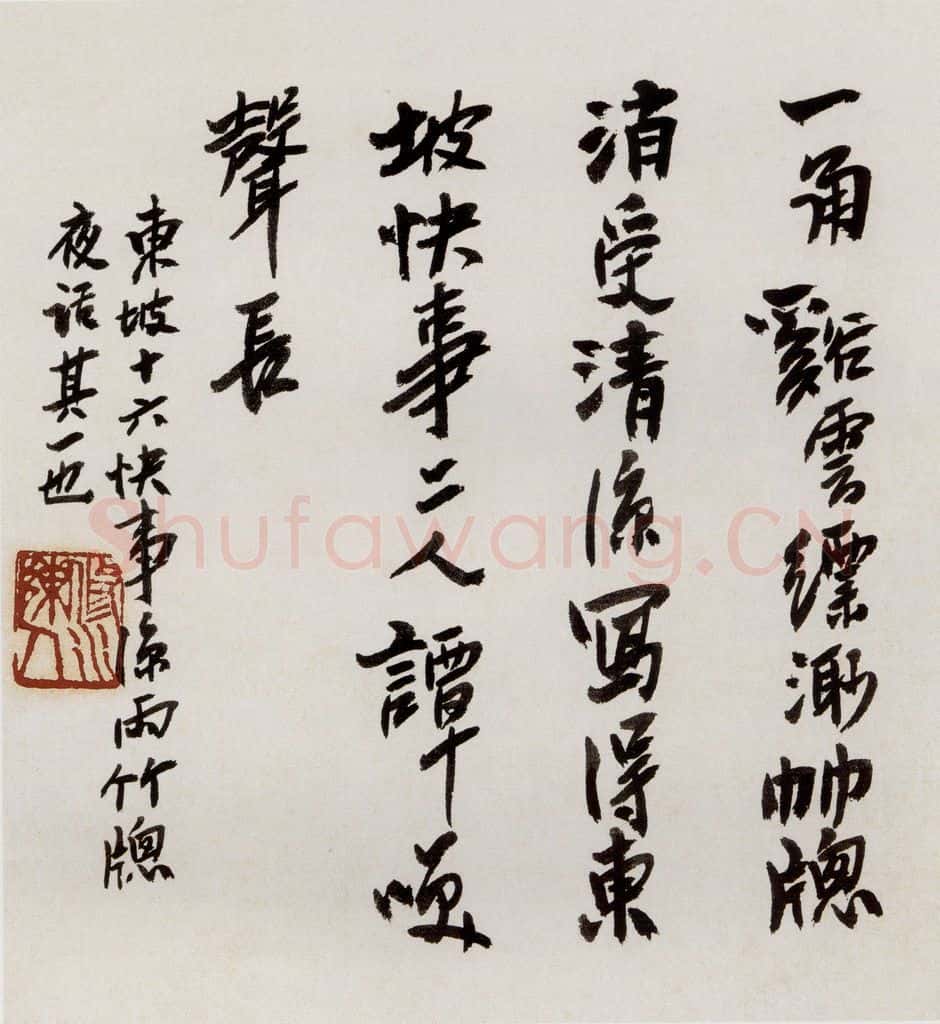 一角谿雲縹渺牕
消受清涼寫得東
坡快事二人譚咲
聲長
東坡十六快事涼雨竹牕
夜話其一也
Shufawang.CN